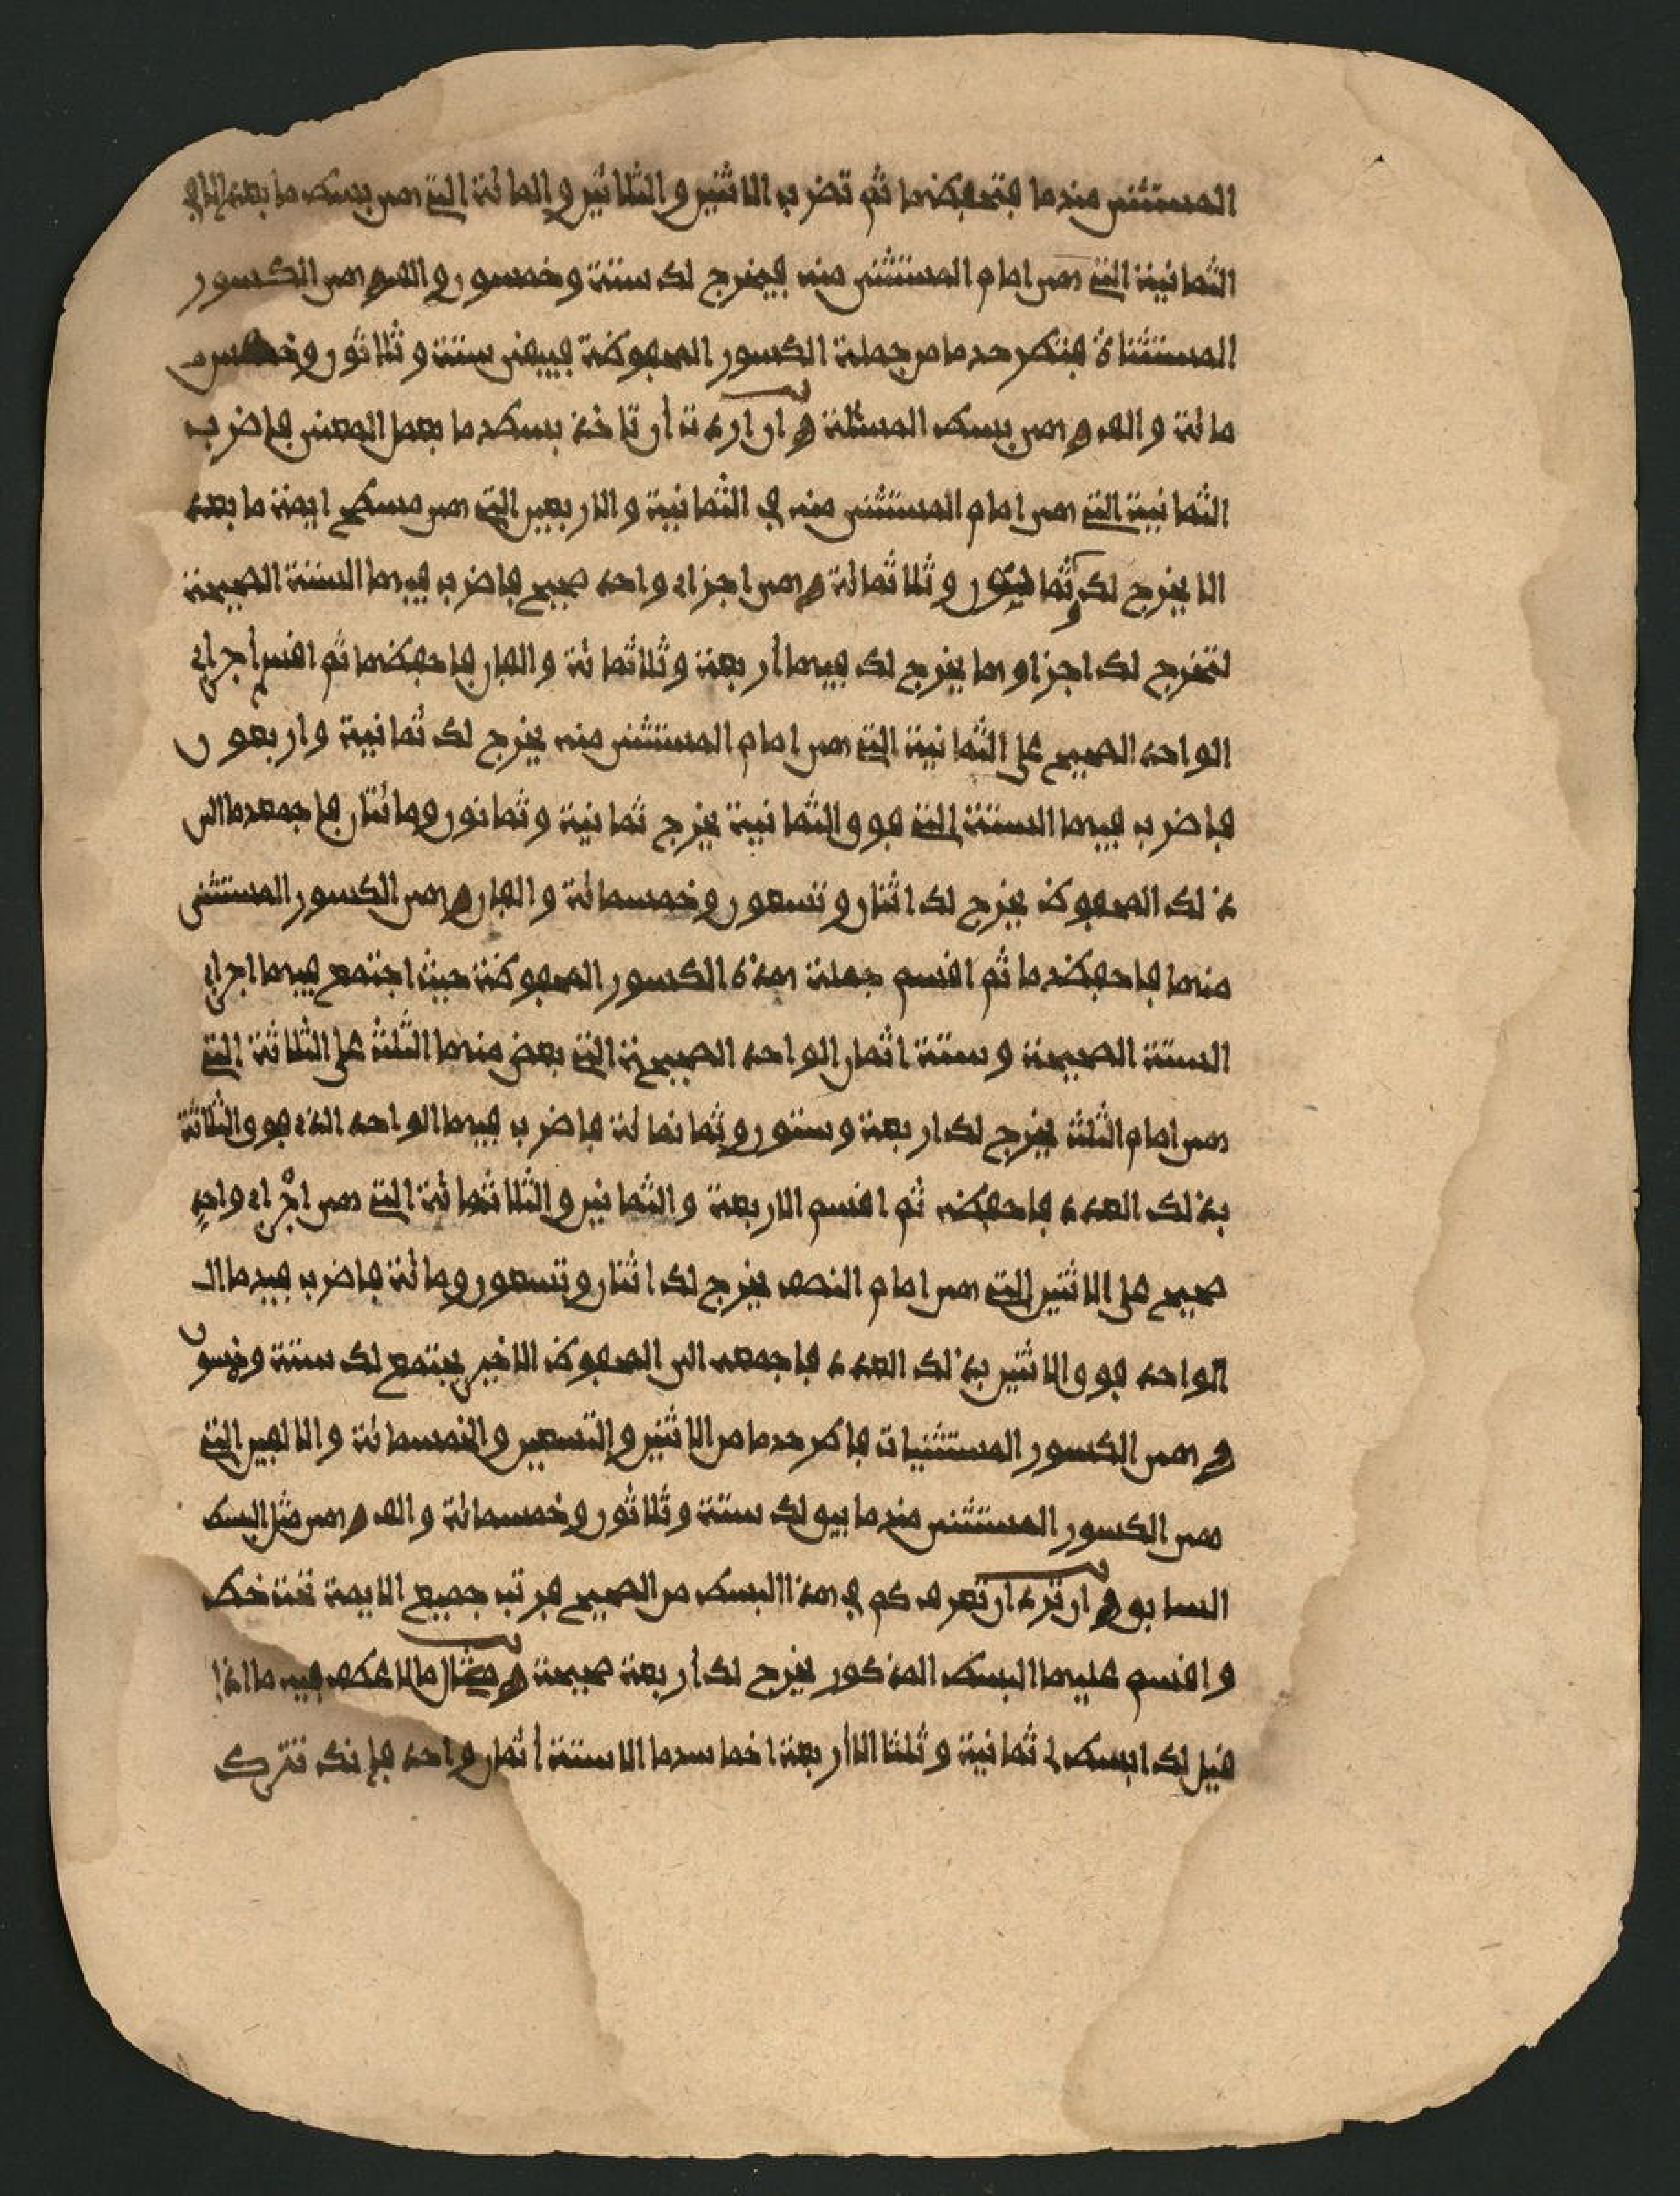 المستثنى منهما فتحفظهما ثم تضرب الاثنين والثلاثين والمائة التي هي بسط ما بعد إلا في
الثمانية التي هي امام المستثنى منه فيخرج لك ستة وخمسون والف وهي الكسور
المستثناة فتطرحها من جملة الكسور المحفوظة فيبقى ستة وثلاثون وخمس
مائة والف وهي بسط المسئلة وان اردت أن تاخذ بسطها بعمل المعنى فاضرب
الثمانية التي هي امام المستثنى منه في الثمانية والاربعين التي هي مسطح ايمة ما بعد
الا يخرج لك وثمانون وثلاثمائة وهي اجزاء واحد صحيح فاضرب فيها الستة الصحيحة
لتخرج لك اجزاوها يخرج لك فيها أربعة وثلاثمائة والفان فاحفظها ثم اقسم أجزاء
الواحد الصحيح على الثمانية التي هي امام المستثنى منه يخرج لك ثمانية واربعون
فاضرب فيها الستة التي فوق الثمانية يخرج ثمانية وثمانون ومائتان فاجمعها الى
ذلك المحفوظ يخرج لك اثنان وتسعون وخمسمائة والفان وهي الكسور المستثنى
منها فاحفظها ثم اقسم جملة هذه الكسور المحفوظة حيث اجتمع فيها اجزاء
الستة الصحيحة وستة اثمان الواحد الصحيحة التي بعض منها الثلث على الثلاثة التي
هي امام الثلث يخرج لك اربعة وستون وثمانمائة فاضرب فيها الواحد الذي فوق الثلاثة
بذلك العدد فاحفظه ثم اقسم الاربعة والثمانين والثلاثمائة التي هي اجزاء واحد
صحيح على الاثنين التي هي امام النصف يخرج لك اثنان وتسعون ومائة فاضرب فيها الـ
الواحد فوق الاثنين بذلك العدد فاجمعه الى المحفوظ الاخير يجتمع لك ستة وخمسون
وهي الكسور المستثنيات فاطرحها من الاثنين والتسعين والخمسمائة والالفين التي
هي الكسور المستثنى منها يبق لك ستة وثلاثون وخمسمائة والف وهي مثل البسط
السابق وان ترد أن تعرف كم في هذا البسط من الصحيح فرتب جميع الايمة تحت خط
واقسم عليها البسط المذكور يخرج لك أربعة صحيحة ومثال ما الا عطف فيه ما اذا
قيل لك ابسط لي ثمانية وثلثا الا أربعة اخماسها الا ستة أثمان واحد فإنك تترك